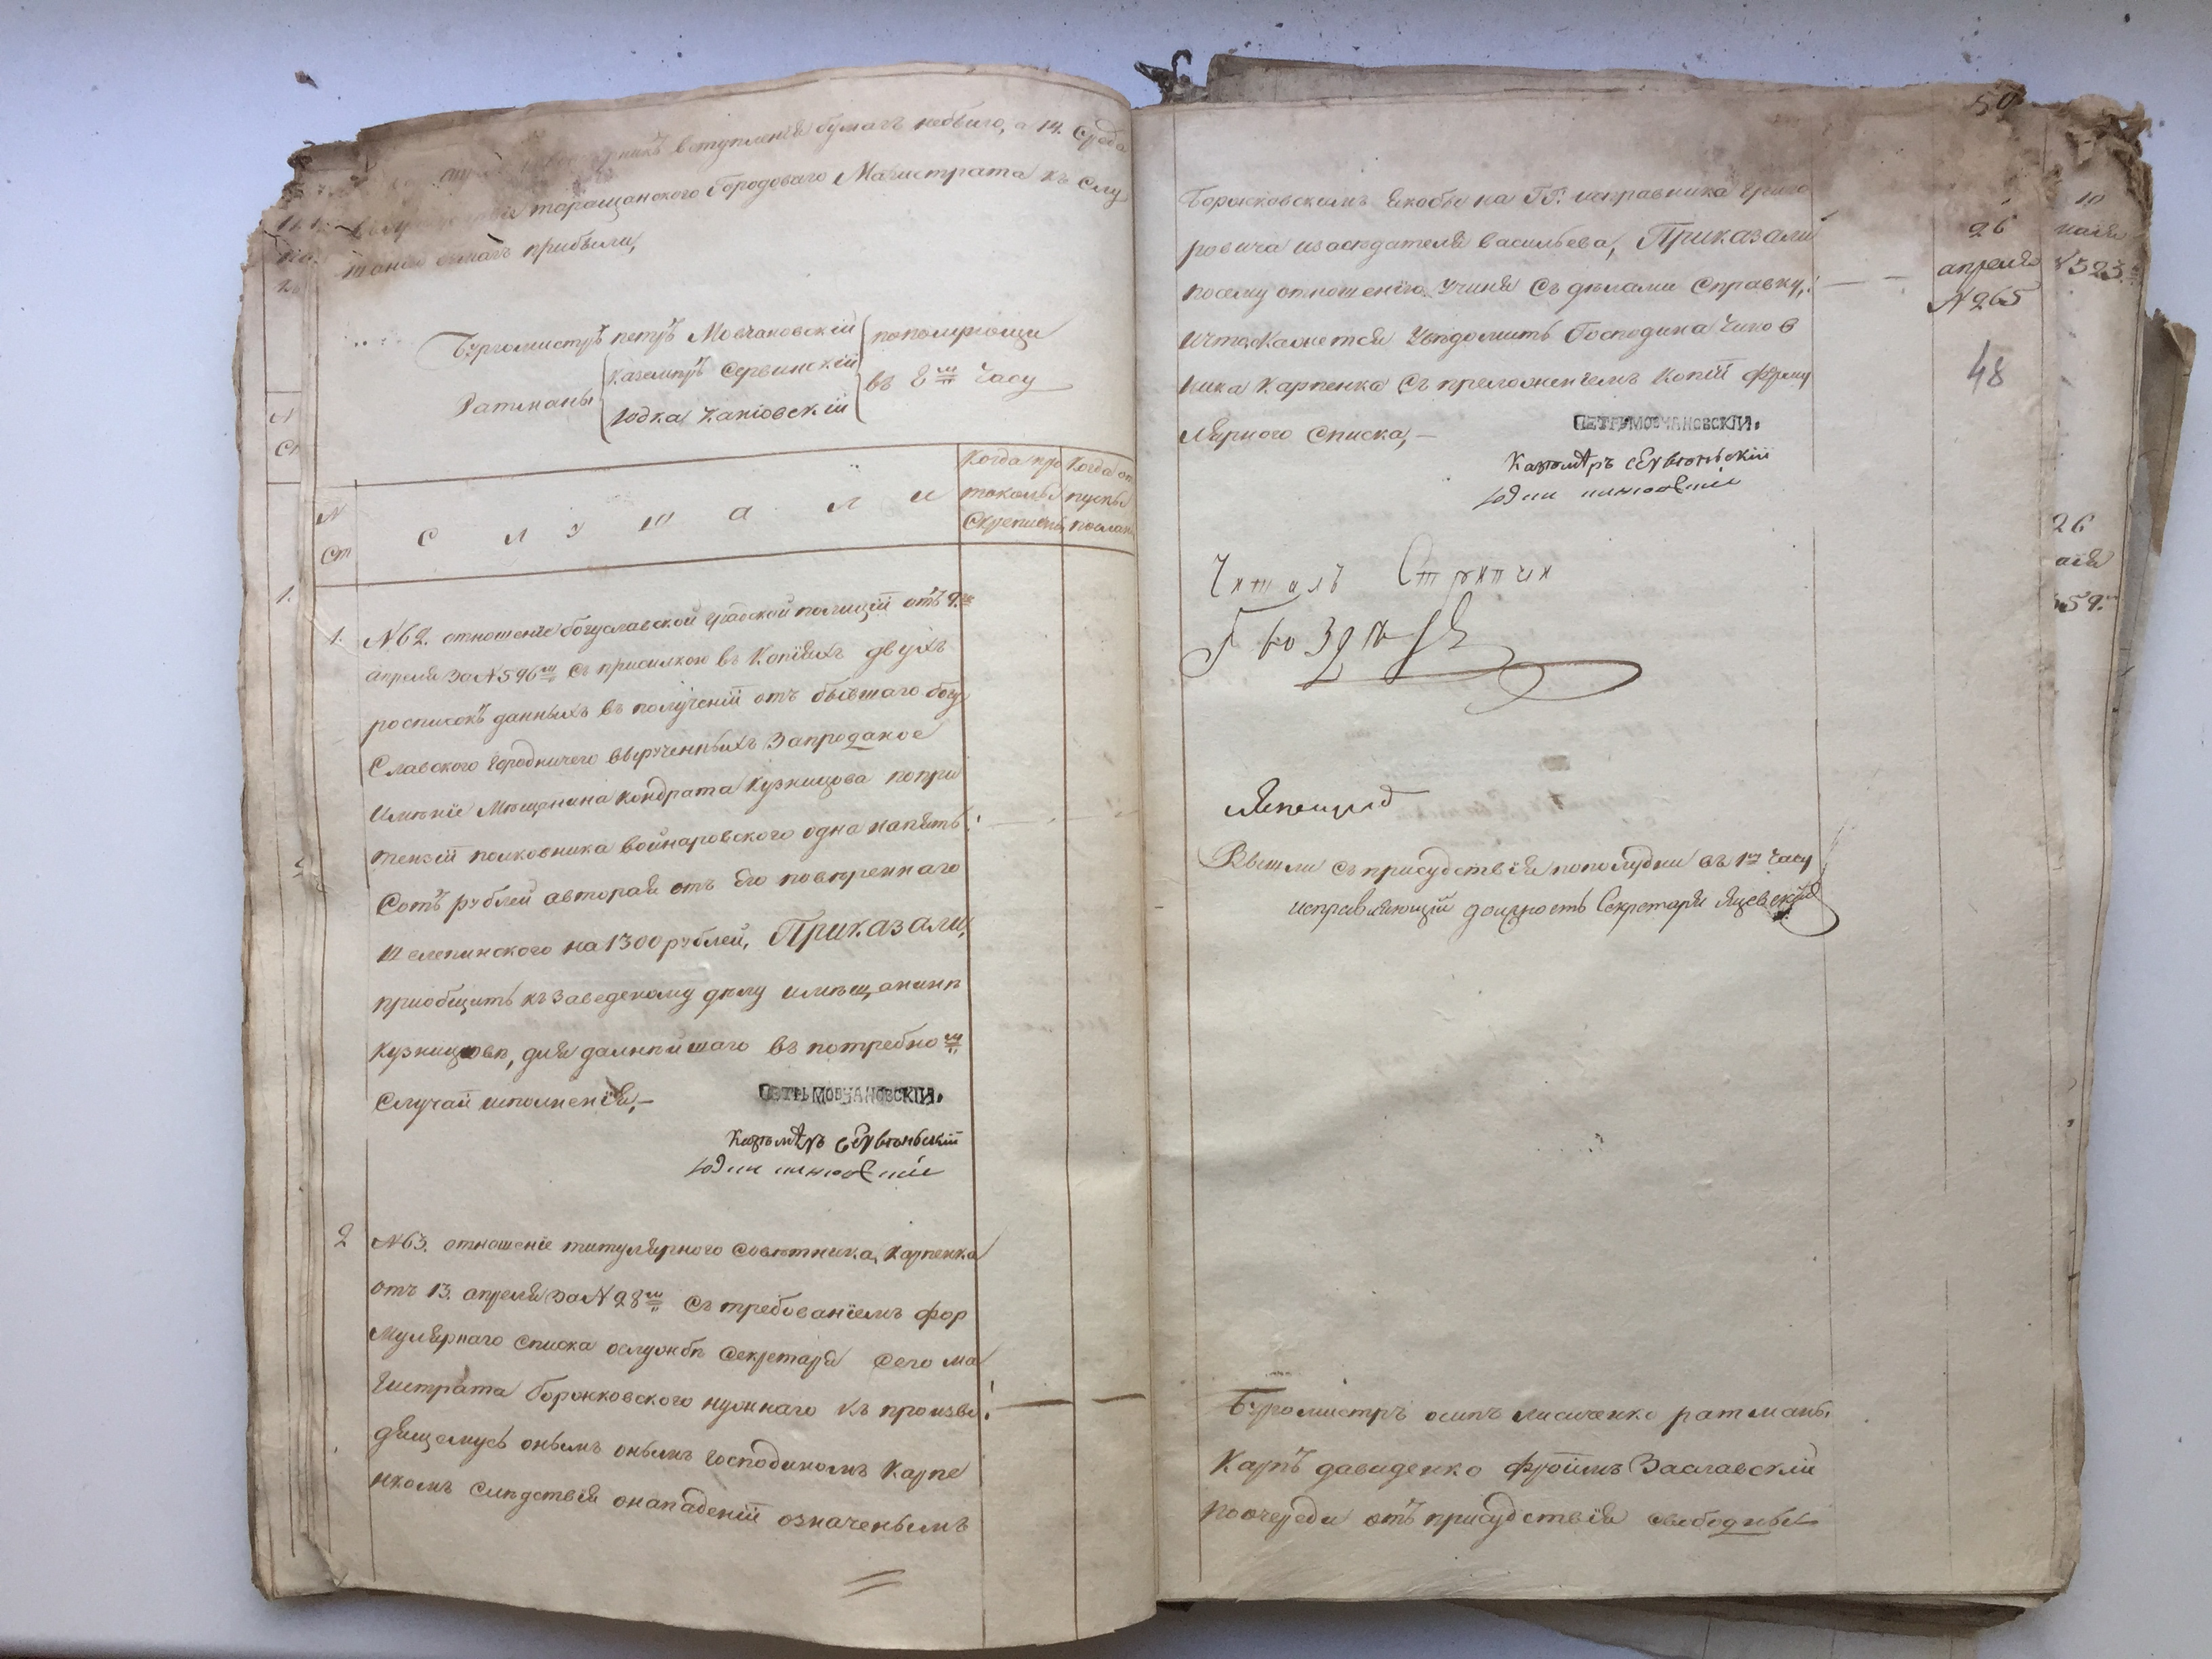 вступленія бумагъ небыло, а 14. Среда
таращанского Городоваго Магистрата къ Слу
шанію бумагъ прибыли,
Бургомистръ петръ Мовчановскій
Ратманы
каземиръ Сервинскій
Іодка Каніовскій
пополунощи
въ 8м часу
N
Ст
С л у ш а л и
Когда про
токолы
Скрепленъ
Когда от
пускъ
посланъ
1. N62. отношеніе богуславской градской полиціи отъ 9.го
апреля за N596м съ присилкою въ Копіяхъ двухъ
росписокъ данныхъ въ полученіи отъ бывшаго богу
Славского городничего вырученныхъ Запроданое
Имѣніе Мѣщанина кондрата Кузницова попри
тензіи полковника войнаровского одна напять
Сотъ рублей авторая отъ его повѣреннаго
Шелепинского на 1300 рублей, Приказали,
приобщить къ Заведеному дѣлу
Кузницовѣ, для далнѣйшаго въ потребном
Случаи исполненія,—
ПЕТРЬ МОВЧАНОВСКІИ.
Казымѣръ Сервѣньскій
2 N63. отношеніе титулярного Совѣтника Карпенка
отъ 13. апреля за N28м съ требованіемъ фор
Мулярнаго списка ослужбѣ Секретаря сего Ма
гистрата Боржковского нужнаго къ произво
дящемусь онымъ онымъ господиномъ Карпе
нкомъ слѣдствія онападеніи означенымъ
50
Боржковскимъ якобы на ГГ. исправника григо
ровича изаседателя васильева, Приказали
посему отношенію учиня съ дѣлами Справку,
ичтоКажется Увѣдомить Господина чинов
ника Карпенка съ приложеніемъ Копіи форму
лярного списка,—
26
апреля
N265
48
ПЕТРЬ МОВЧАНОВСКІИ.
Казымѣръ Сервѣньскій
Читалъ Стряпчи
Вышли съ присудствія пополудни въ 1м часу
исправляющій должность Секретаря Яцевскій
Бургомистръ осипъ лисиченко ратманы
Карпъ давиденко фроимъ Заславскій
поочереди отъ присудствія свободны
10
N523.
26
59.